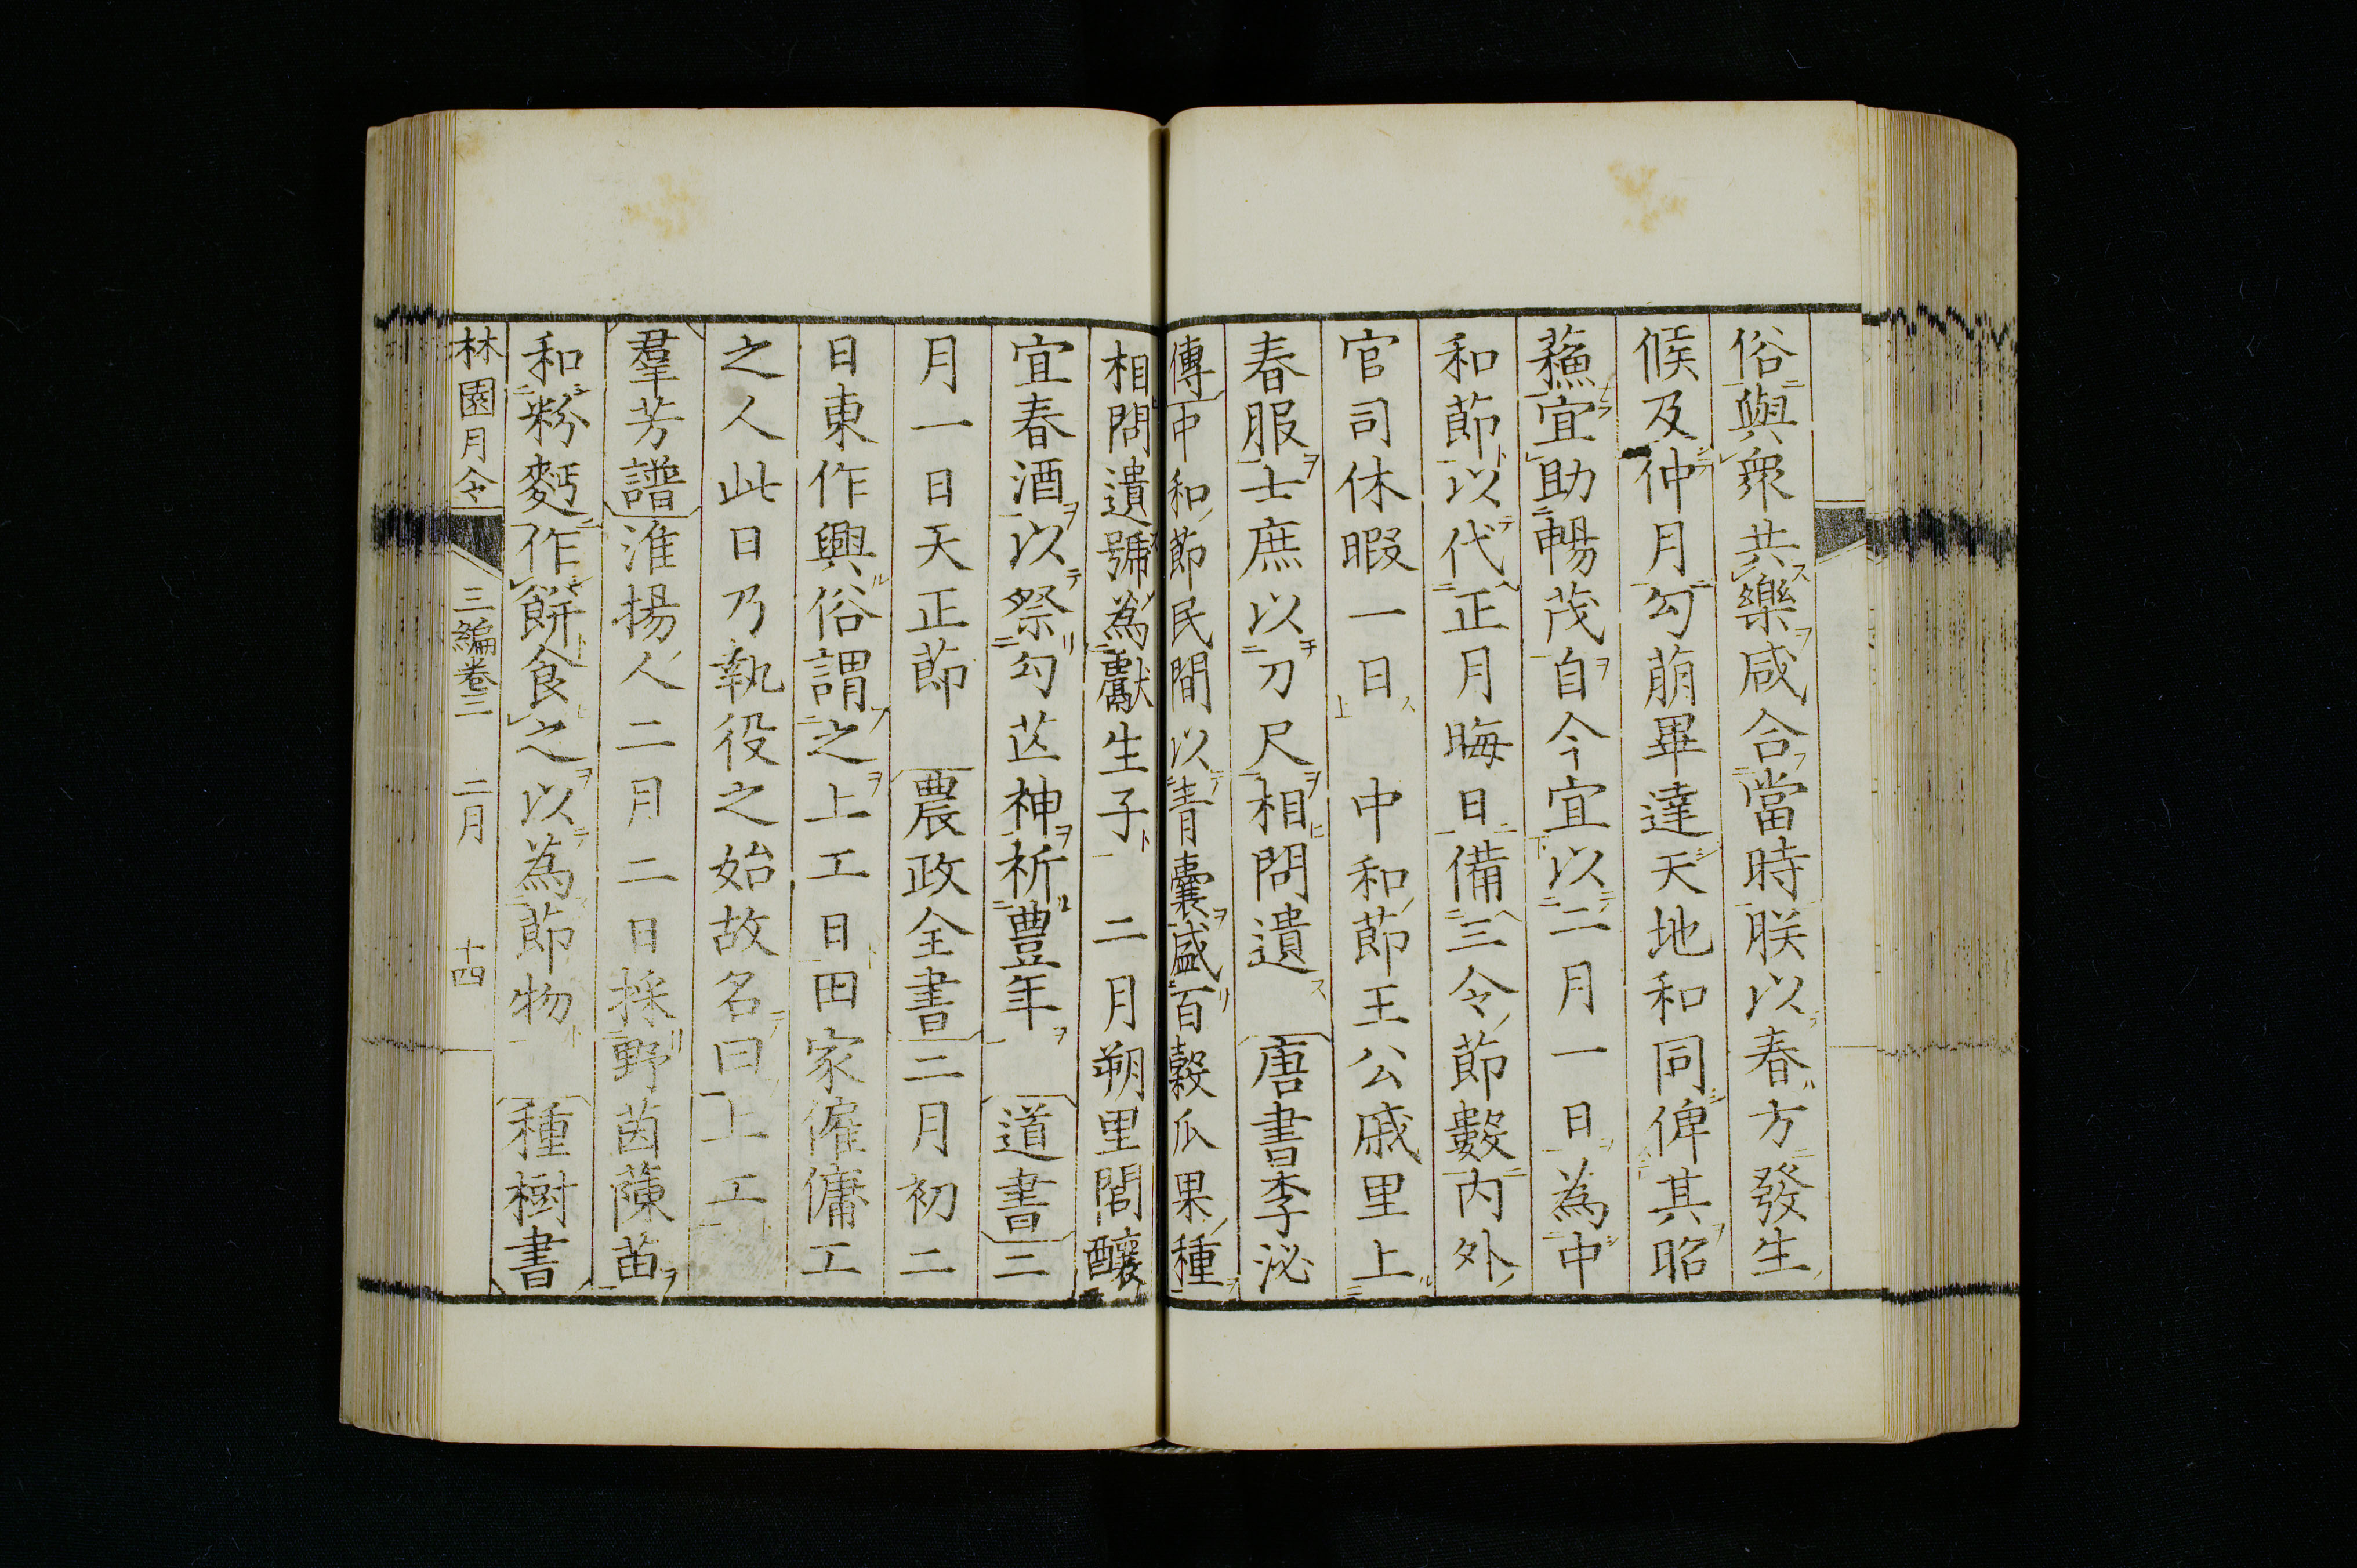 俗與衆共樂咸合當時朕以春方發生
候及仲月勾萌畢達天地和同俾其昭
蘓宜助暢茂自今宜以二月一日為中
和節以代正月晦日備三令節數内外
官司休暇一日 中和節王公戚里上
春服士庶以刀尺相問遺 唐書李泌
傳中和節民間以青囊盛百穀瓜果種
相問遺號為獻生子 二月朔里閭釀
宜春酒以祭勾芒神祈豐年 道書二
月一日天正節 農政全書二月初二
日東作興俗謂之上工日田家僱傭工
之人此日乃執役之始故名曰上工
羣芳譜淮揚人二月二日採野茵蔯苗
和粉麪作餅食之以為節物 種樹書
林園月令 三編卷二 二月 十四